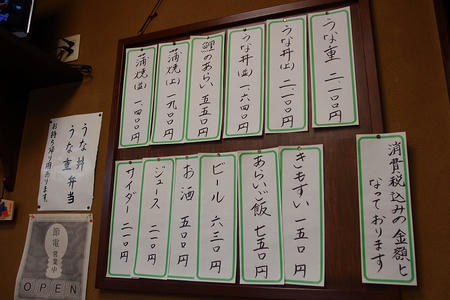 うな重 二、一〇〇円
うな丼(上) 二、一〇〇円
うな丼(並) 一、六四〇円
鯉のあらい 五五〇円
蒲焼(上) 一、九〇〇円
蒲焼(並) 一、四〇〇円
きもすい 一五〇円
あらいご飯 七五〇円
ビール 六三〇円
お酒 五〇〇円
ジュース 二一〇円
サイダー 二一〇円
消費税込みの金額と
なっております
うな丼
うな重弁当
お持ち帰り用あります。
節電
営業中
OPEN